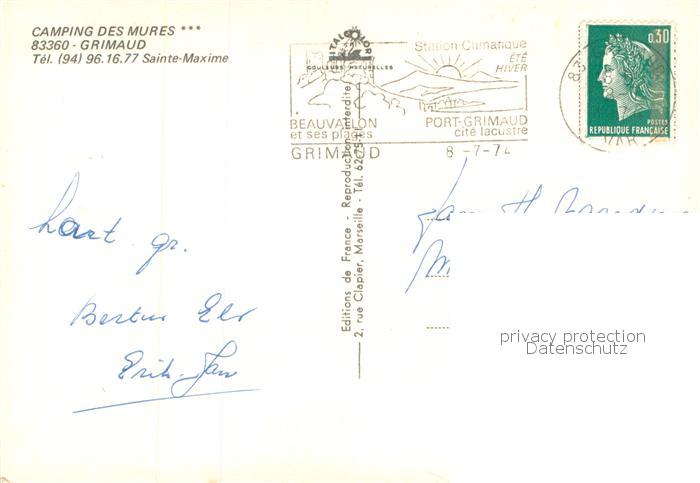 CAMPING DES MURES ***
83360 - GRIMAUD
Tél. (94) 96.16.77 Sainte-Maxime
ITALCOLOR
COULEURS NATURELLES
Station Climatique
ÉTÉ
HIVER
BEAUVALLON
et ses plages
PORT-GRIMAUD
cité lacustre
GRIMAUD
8 -7-74
83
VAR
0,30
POSTES
REPUBLIQUE FRANÇAISE
Editions de France - Reproduction interdite
2, rue Clapier, Marseille - Tél. 62.75.
hart. gr.
Erik-Jan
Jan H
privacy protection
Datenschutz